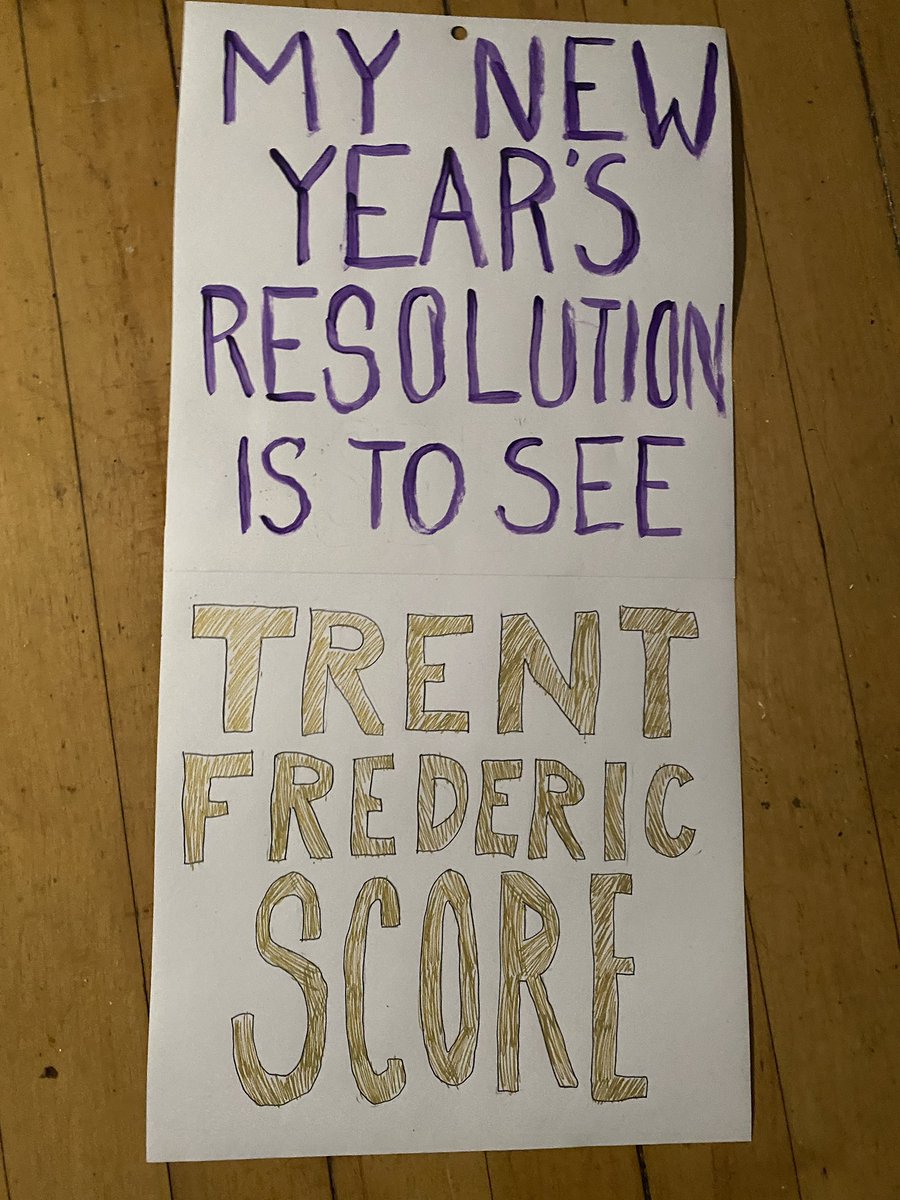 MY NEW
YEAR'S
RESOLUTION
IS TO SEE
TRENT
FREDERIC
SCORE